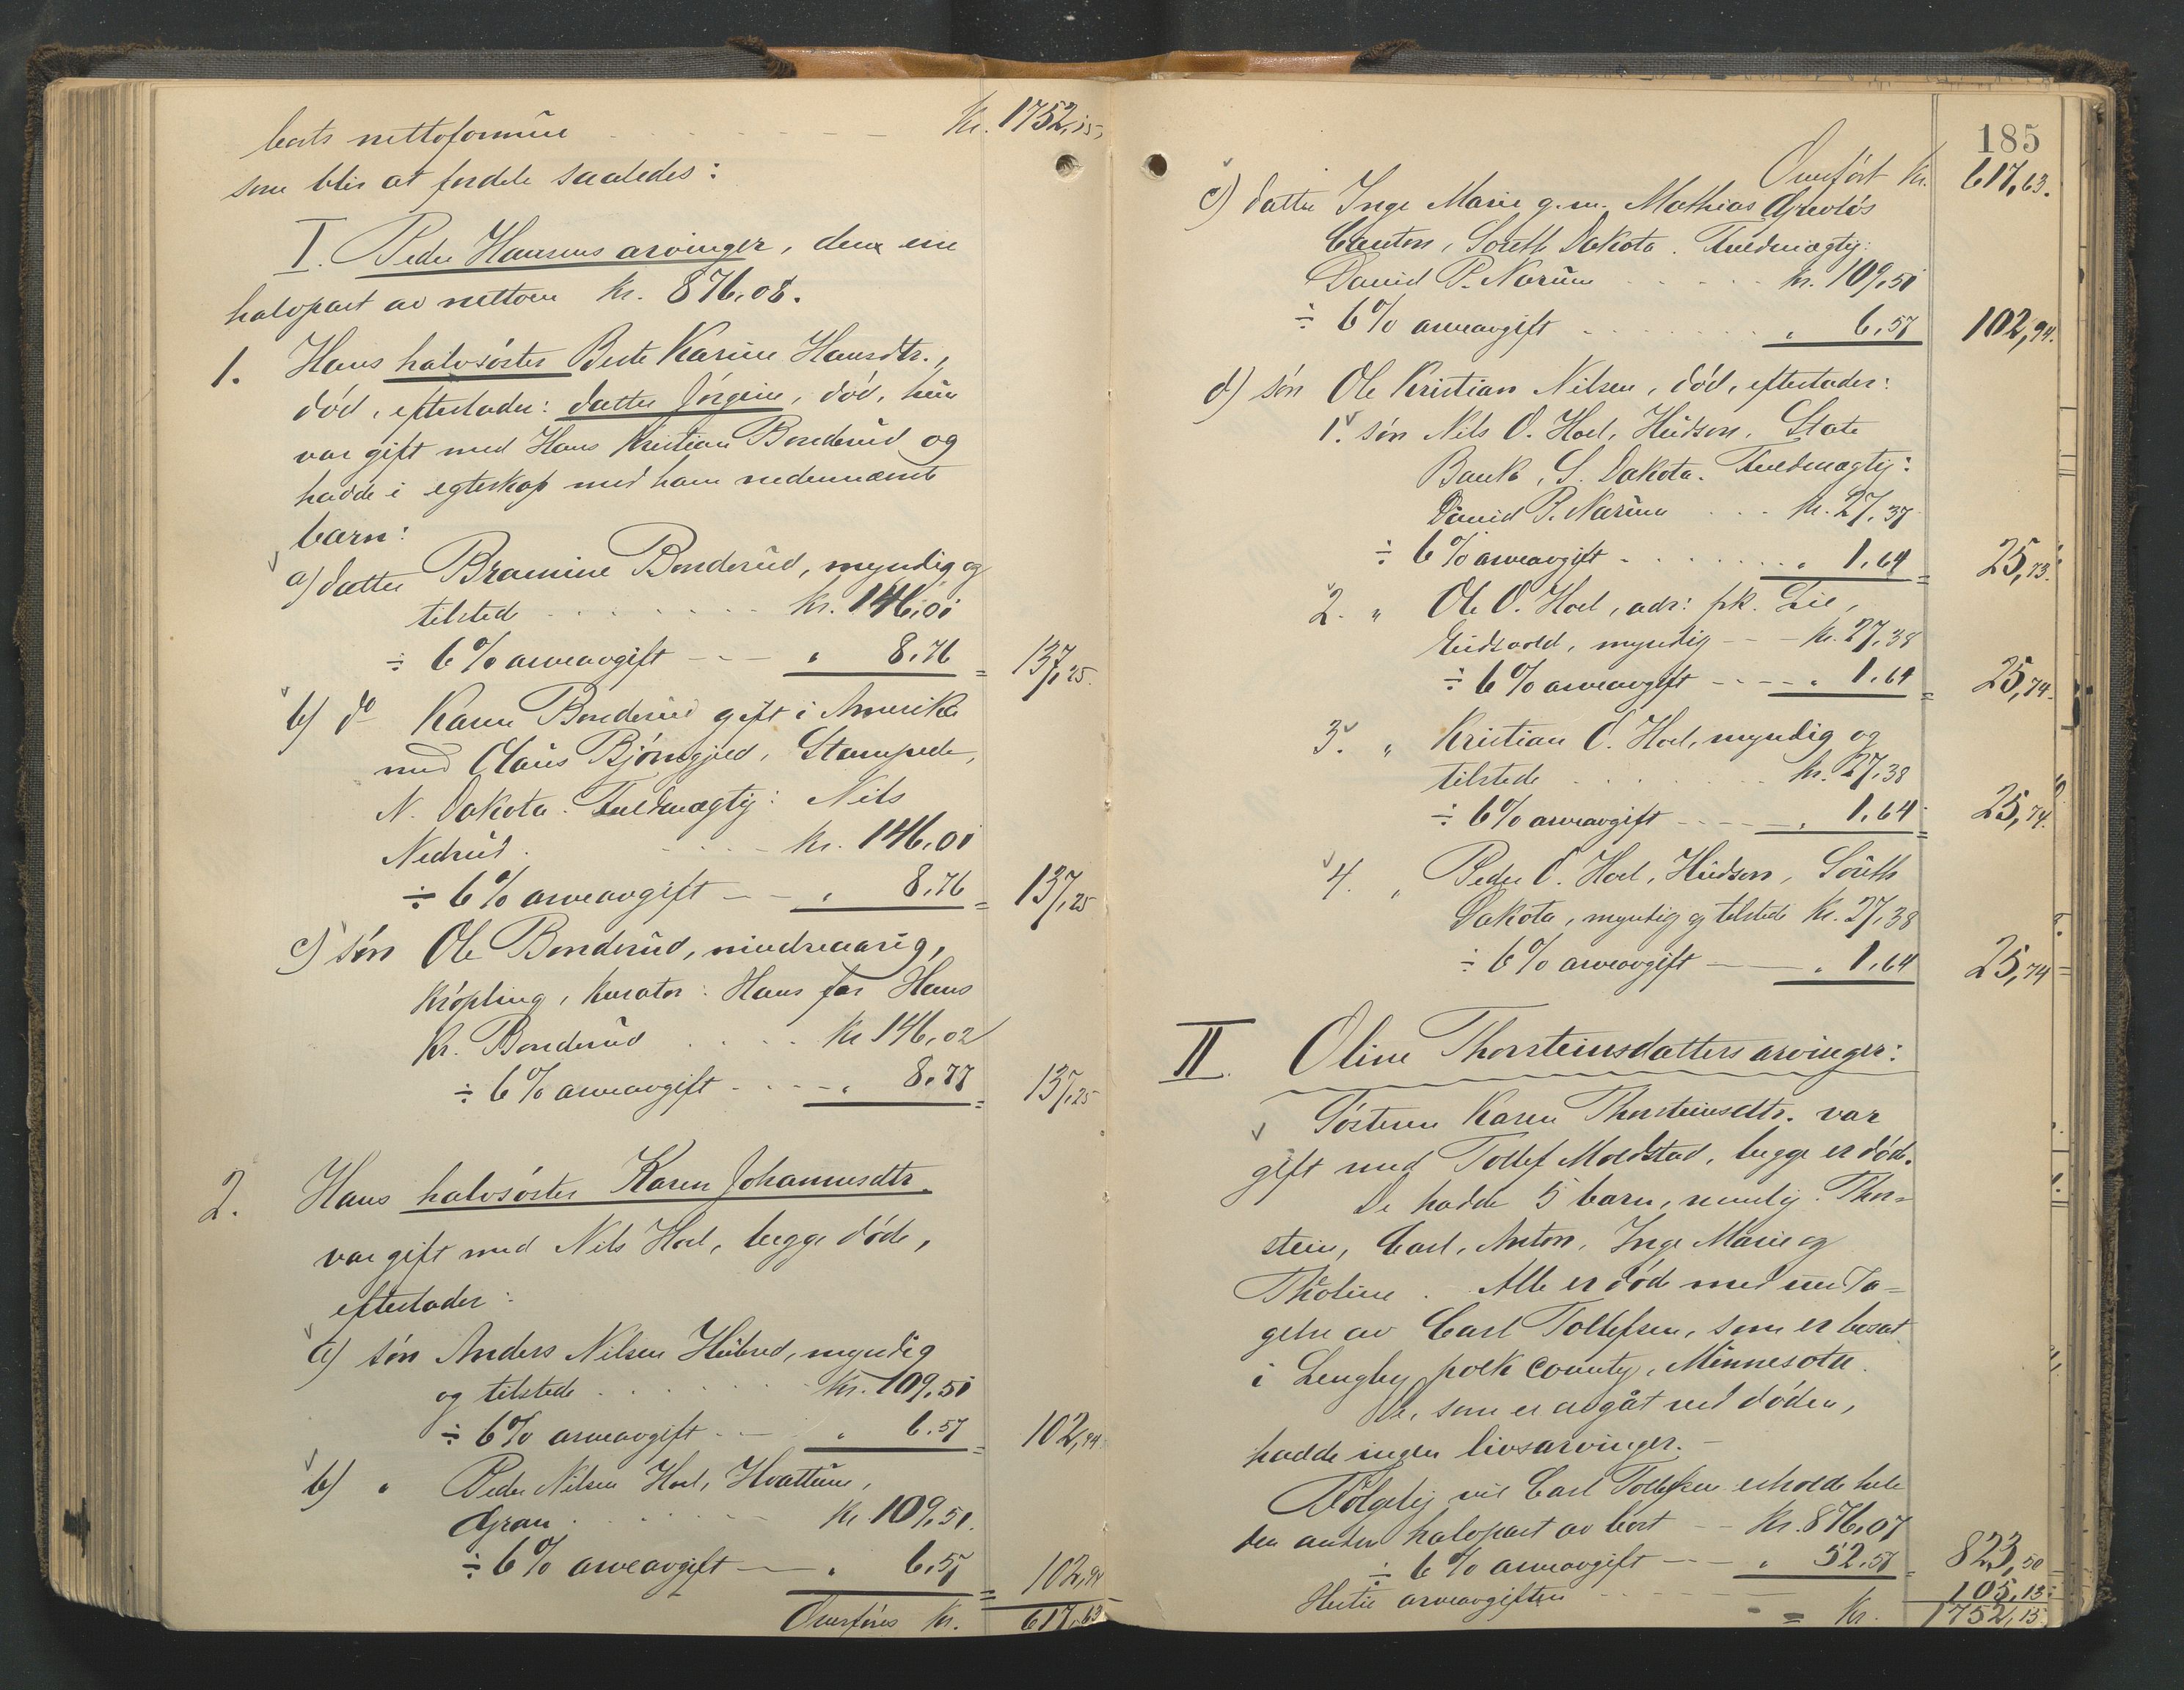 boets nettoformue - - - - Kr. 1752,15,
som blir at fordele saaledes:
I. Peder Hansens arvinger, den ene
halvpart av nettoen kr. 876,08.
1. Hans halvsøster Berte Karine Hansdtr.,
død, efterlader: datter Jørgine, død, hun
var gift med Hans Kristian Bonderud og
hadde i egteskap med ham nedennævnte
barn:
a) datter Bramine Bonderud, myndig og
tilstede - - - - kr. 146,01
÷ 6% arveavgift - - - „ 8,76 = 137,25.
b) do Karen Bonderud gift i Amerika
med Olaus Bjørngjeld, Stampede,
N. Dakota. Fuldmægtig: Nils
Nedrud. - - - kr. 146,01
÷ 6% arveavgift - - „ 8,76 = 137,25
c) søn Ole Bonderud, mindreaarig,
krøpling, kurator: Hans far Hans
Kr. Bonderud . . . . kr 146,02
÷ 6% arveavgift - - - - „ 8,77 = 137,25
2. Hans halvsøster Karen Johannesdtr.
var gift med Nils Hoel, begge døde,
efterlader:
a) søn Anders Nilsen Hubred, myndig
og tilstede . . . . kr. 109,51
÷ 6% arveavgift - - „ 6,57 = 102,94
b) „ Peder Nilsen Hoel, Hvattum,
Gran . . . . kr. 109,51.
÷ 6% arveavgift - „ 6,57 = 102,94
Overføres kr. 617,63
185
Overført kr. 617,63.
c) datter Inge Marie g.m. Mathias
Canton, South Dakota. Fuldmægtig:
David P. Narum - - - - kr. 109,51
÷ 6% arveavgift - - - - „ 6,57 102,94.
d) søn Ole Kristian Nilsen, død, efterlader:
1. søn Nils O. Hoel, Hudson, State
Bank, S. Dakota. Fuldmægtig:
David P. Narum . . . kr. 27,37
÷ 6% arveavgift - . . . . „ 1,64 = 25,73.
2. „ Ole O. Hoel, adr: frk. Lie,
Eidsvold, myndig - - - kr. 27,38
÷ 6% arveavgift - - - - „ 1,64 = 25,74.
3. „ Kristian O. Hoel, myndig og
tilstede . . . . kr. 27,38
÷ 6% arveavgift - - - - „ 1,64 = 25,74.
4. „ Peder O. Hoel, Hudson, South
Dakota, myndig og tilstede kr. 27,38
÷ 6% arveavgift - „ 1,64 25,74
II. Oline Thorsteinsdatters arvinger:
Søsteren Karen Thorsteinsdtr. var
gift med Tollef Moldstad, begge er død.
De hadde 5 barn, nemlig: Thor-
stein, Carl, Anton, Inge Marie og
Tholine. Alle er død med undta-
gelse av Carl Tollefsen, som er bosat
i Lengby, polk county, Minnesota.
De, som er avgåt ved døden,
hadde ingen livsarvinger. -
Følgelig vil Carl Tollefsen erholde hele
den anden halvpart av boet - - kr. 876,07
÷ 6% arveavgift - - - „ 52,57 = 823,50
Hertil arveavgiften - - - - 105,13
= Kr. 1752,15